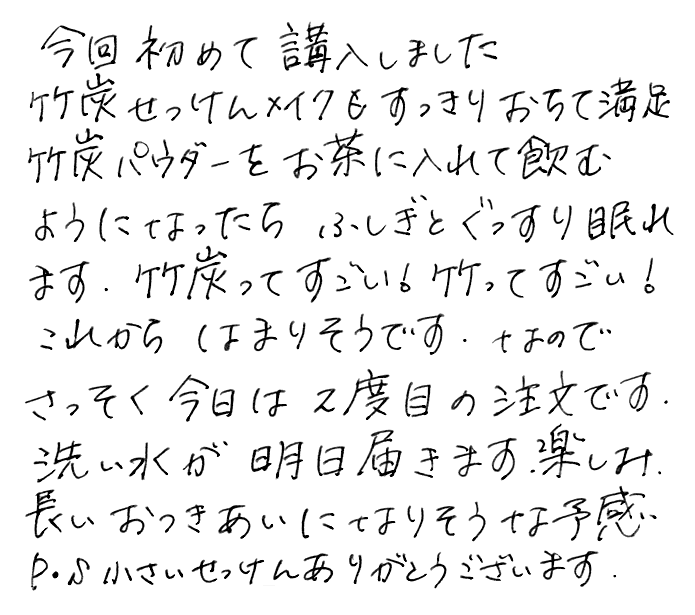 今回初めて講入しました
竹炭せっけんメイクもすっきりおちて満足
竹炭パウダーをお茶に入れて飲む
ようになったら ふしぎとぐっすり眠れ
ます．竹炭ってすごい！竹ってすごい！
これからはまりそうです．なので
さっそく今日は2度目の注文です．
洗い水が明日届きます．楽しみ．
長いおつきあいになりそうな予感‥
P.S 小さいせっけんありがとうございます．